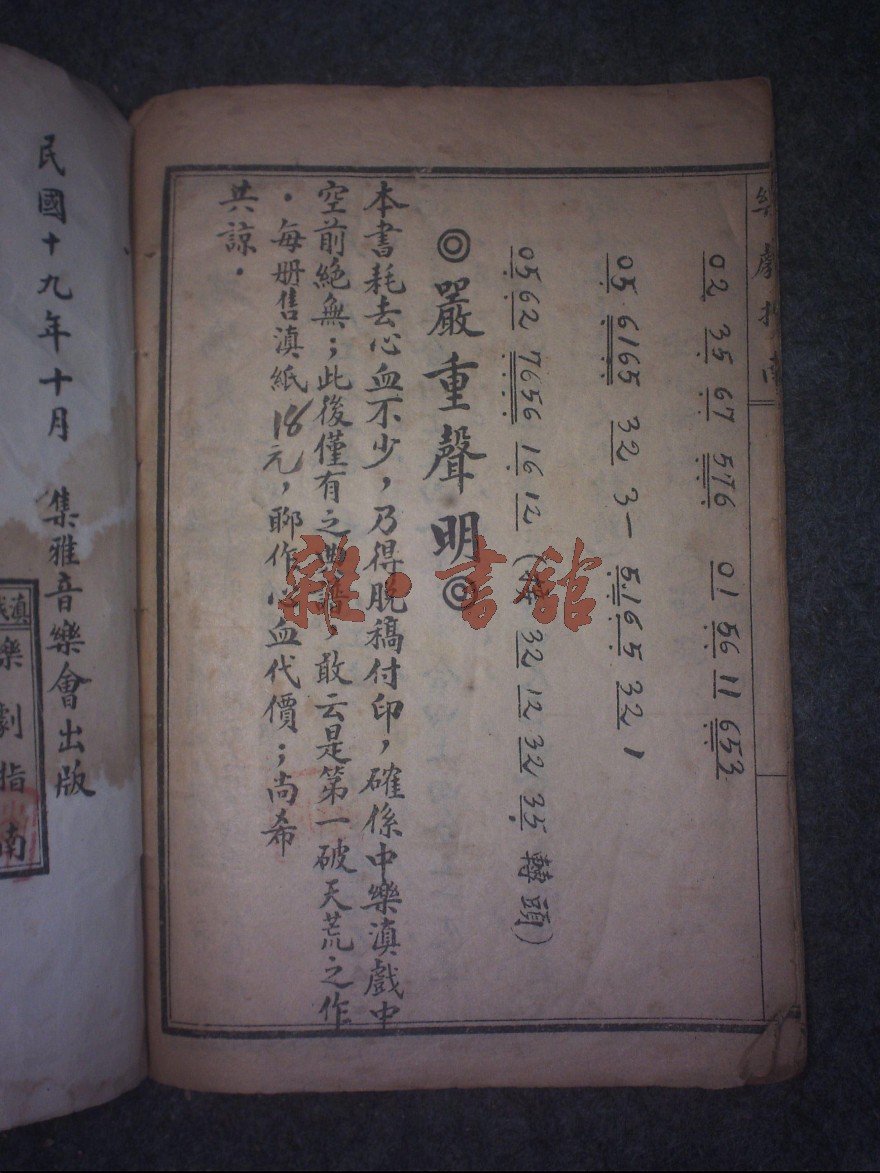 樂劇指南
02 35 67 576 01 56 11 653
05 6165 32 3— 5.165 32 1
05 62 7656 16 12 ( 32 12 32 35 轉頭)
◎嚴重聲明◎
本書耗去心血不少，乃得脫稿付印，確係中樂滇戲中
空前絕無；此後僅有之曲譜，敢云是第一破天荒之作
．每册售滇紙18元，聊作心血代價；尚希
共諒．
雜·書館
民國十九年十月 集雅音樂會出版
滇戲
樂劇指南